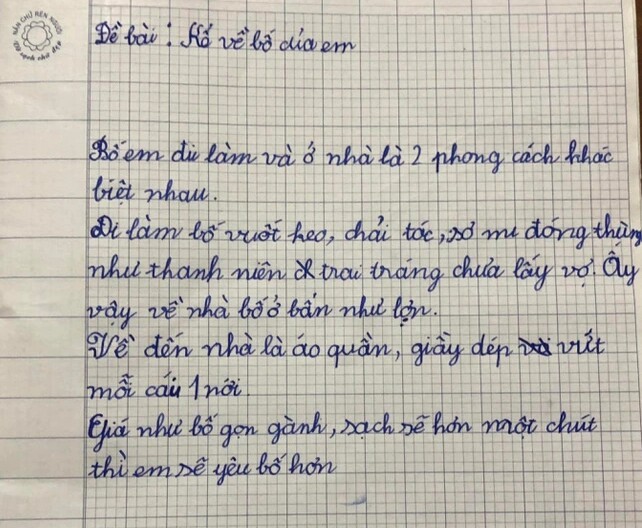 NẮN CHỮ RÈN NGƯỜI
Đề bài : Kố về bố của em
Bố em đi làm và ở nhà là 2 phong cách khác
biệt nhau.
Đi làm bố vuốt keo, chải tóc, sơ mi đóng thùng
như thanh niên trai tráng chưa lấy vợ. Ấy
vậy về nhà bố ở bẩn như lợn.
Về đến nhà là áo quần, giầy dép vứt
mỗi cái 1 nơi.
Giá như bố gọn gành, sạch sẽ hơn một chút
thì em sẽ yêu bố hơn